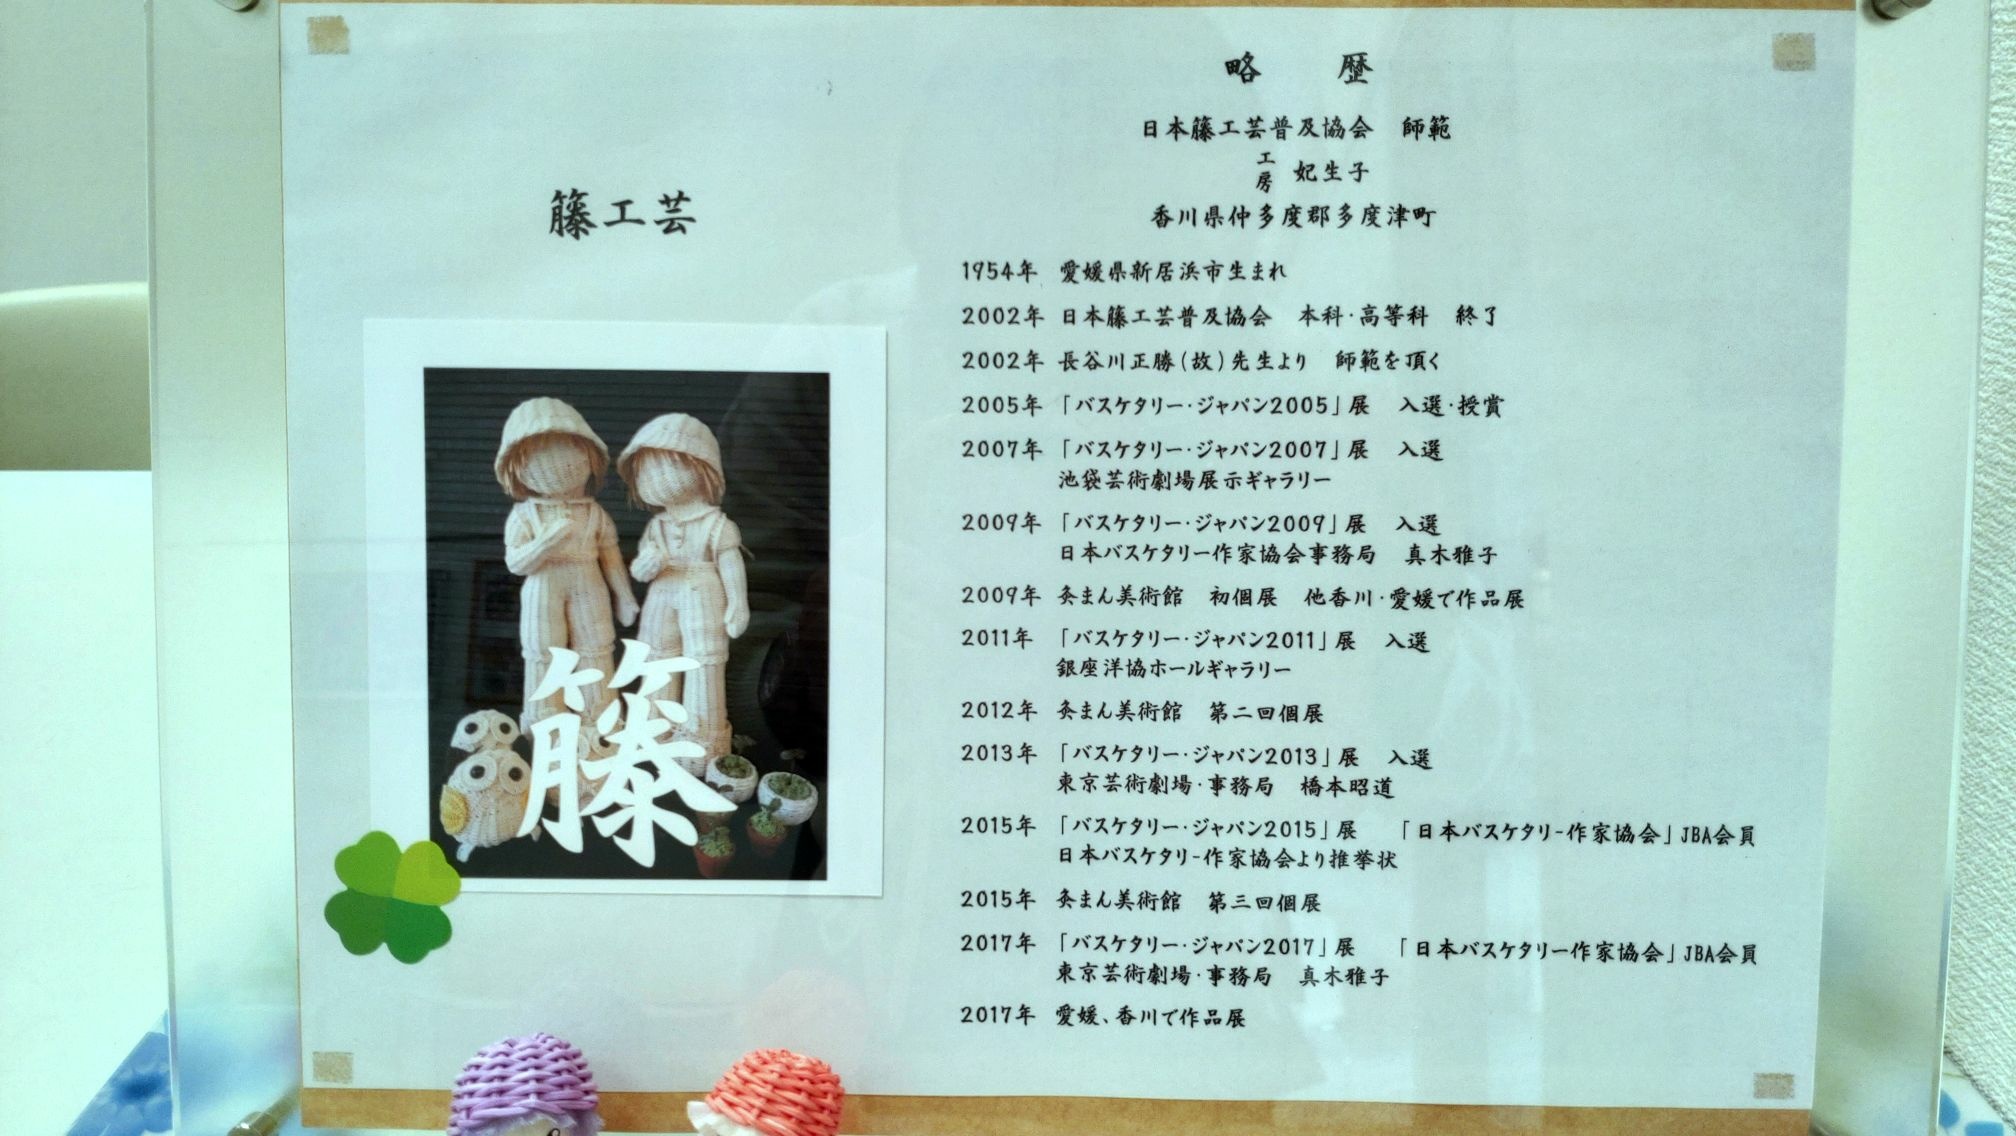 籐工芸
籐
略　歴
日本籐工芸普及協会　師範
工房 妃生子
香川県仲多度郡多度津町
1954年 愛媛県新居浜市生まれ
2002年 日本籐工芸普及協会　本科・高等科　終了
2002年 長谷川正勝(故)先生より　師範を頂く
2005年 「バスケタリー・ジャパン2005」展　入選・授賞
2007年 「バスケタリー・ジャパン2007」展　入選
池袋芸術劇場展示ギャラリー
2009年 「バスケタリー・ジャパン2009」展　入選
日本バスケタリー作家協会事務局　真木雅子
2009年 灸まん美術館　初個展　他香川・愛媛で作品展
2011年 「バスケタリー・ジャパン2011」展　入選
銀座洋協ホールギャラリー
2012年 灸まん美術館　第二回個展
2013年 「バスケタリー・ジャパン2013」展　入選
東京芸術劇場・事務局　橋本昭道
2015年 「バスケタリー・ジャパン2015」展　「日本バスケタリ-作家協会」JBA会員
日本バスケタリ-作家協会より推挙状
2015年 灸まん美術館　第三回個展
2017年 「バスケタリー・ジャパン2017」展　「日本バスケタリー作家協会」JBA会員
東京芸術劇場・事務局　真木雅子
2017年 愛媛、香川で作品展